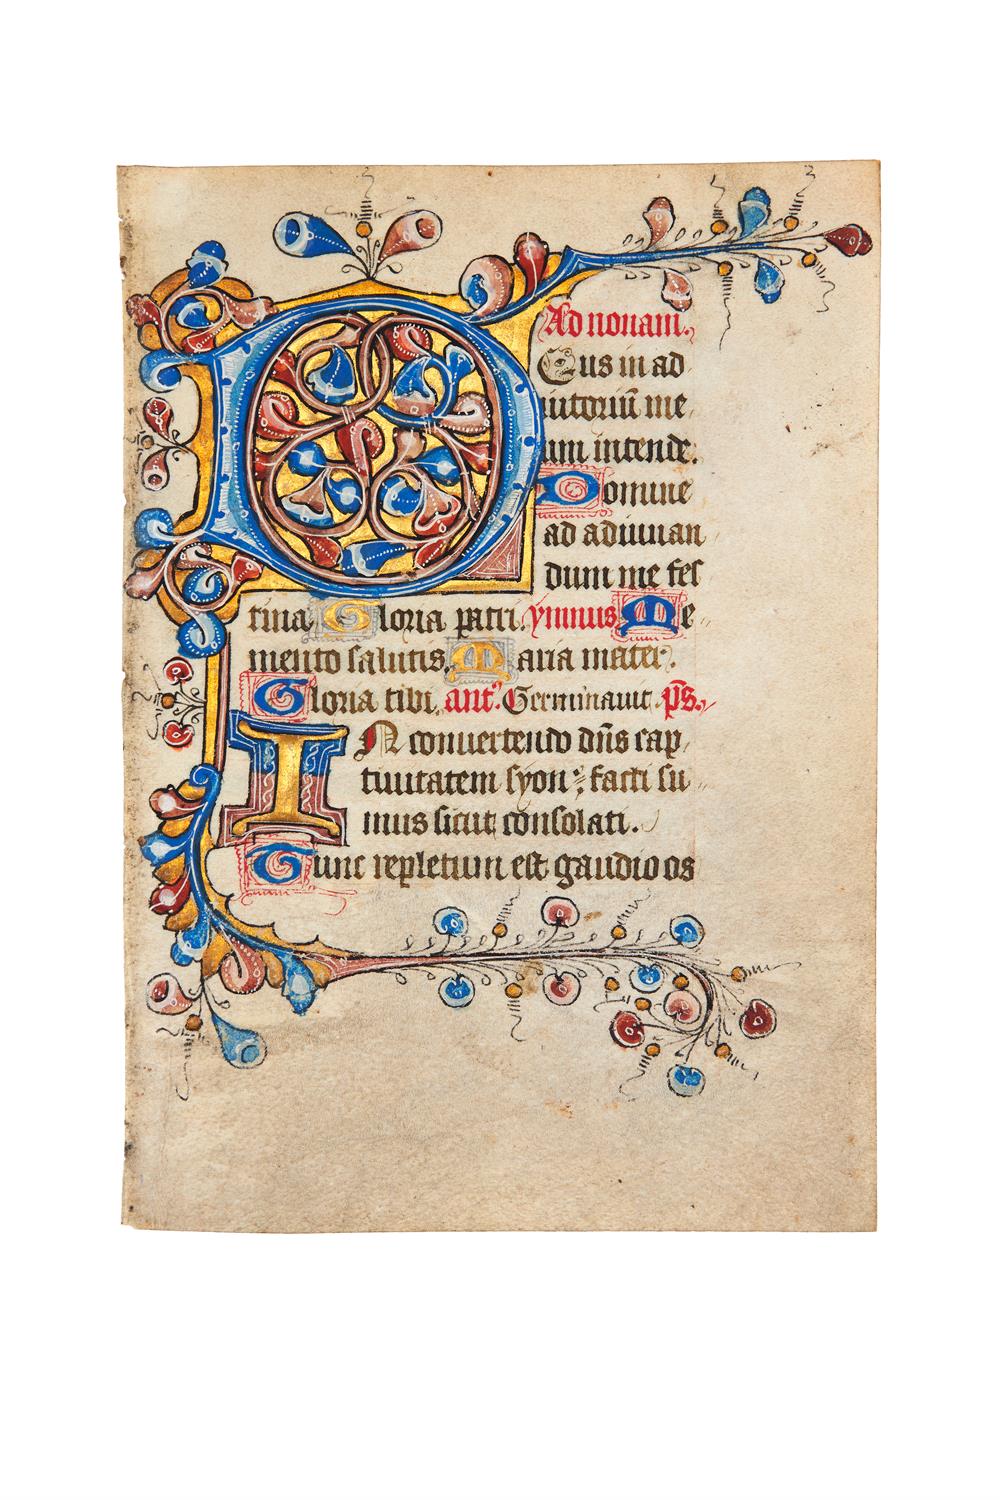 Ad nonam.
Deus in ad
iutoriū me
um intende.
Domine
ad adiuuan
dum me fes
tina Gloria patri. ymnus Me
mento salutis. Maria mater.
Gloria tibi. ant. Germinauit. ps.
IN conuertendo dn̄s cap
tiuitatem syon : facti su
mus sicut consolati.
Tunc repletum est gaudio os